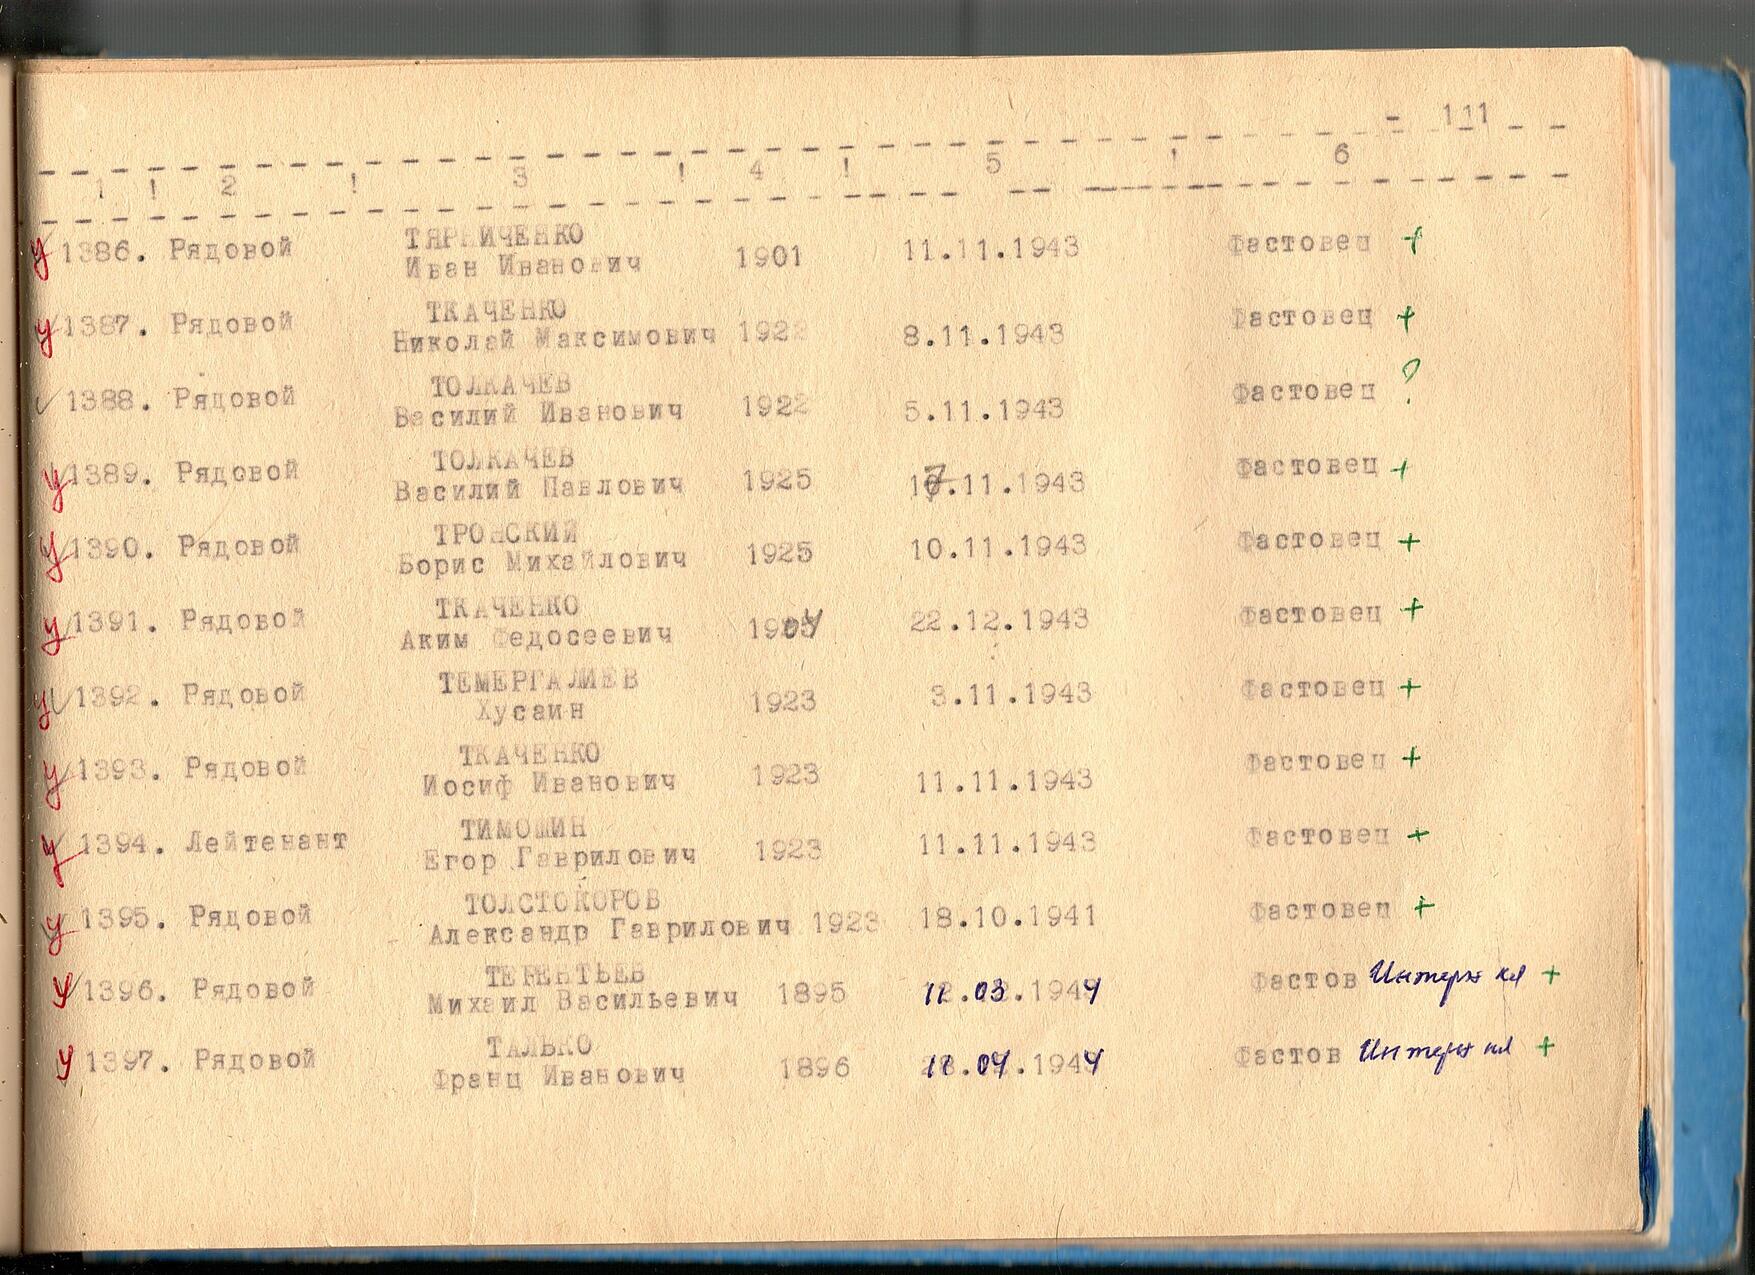 - 111
1 ! 2 ! 3 ! 4 ! 5 ! 6
у 1386. Рядовой ТЯРНИЧЕНКО 1901 11.11.1943 Фастовец +
Иван Иванович
у 1387. Рядовой ТКАЧЕНКО 1922 8.11.1943 Фастовец +
Николай Максимович
1388. Рядовой ТОЛКАЧЕВ 1922 5.11.1943 Фастовец ?
Василий Иванович
у 1389. Рядовой ТОЛКАЧЕВ 1925 17.11.1943 Фастовец +
Василий Павлович
у 1390. Рядовой ТРОНСКИЙ 1925 10.11.1943 Фастовец +
Борис Михайлович
у 1391. Рядовой ТКАЧЕНКО 1904 22.12.1943 Фастовец +
Аким Федосеевич
у 1392. Рядовой ТЕМЕРГАЛИЕВ 1923 3.11.1943 Фастовец +
Хусаин
у 1393. Рядовой ТКАЧЕНКО 1923 11.11.1943 Фастовец +
Иосиф Иванович
у 1394. Лейтенант ТИМОШИН 1923 11.11.1943 Фастовец +
Егор Гаврилович
у 1395. Рядовой ТОЛСТОКОРОВ 1923 18.10.1941 Фастовец +
Александр Гаврилович
у 1396. Рядовой ТЕРЕНТЬЕВ 1895 12.03.1944 Фастов Интерн кл +
Михаил Васильевич
у 1397. Рядовой ТАЛЬКО 1896 18.04.1944 Фастов Интерн кл +
Франц Иванович